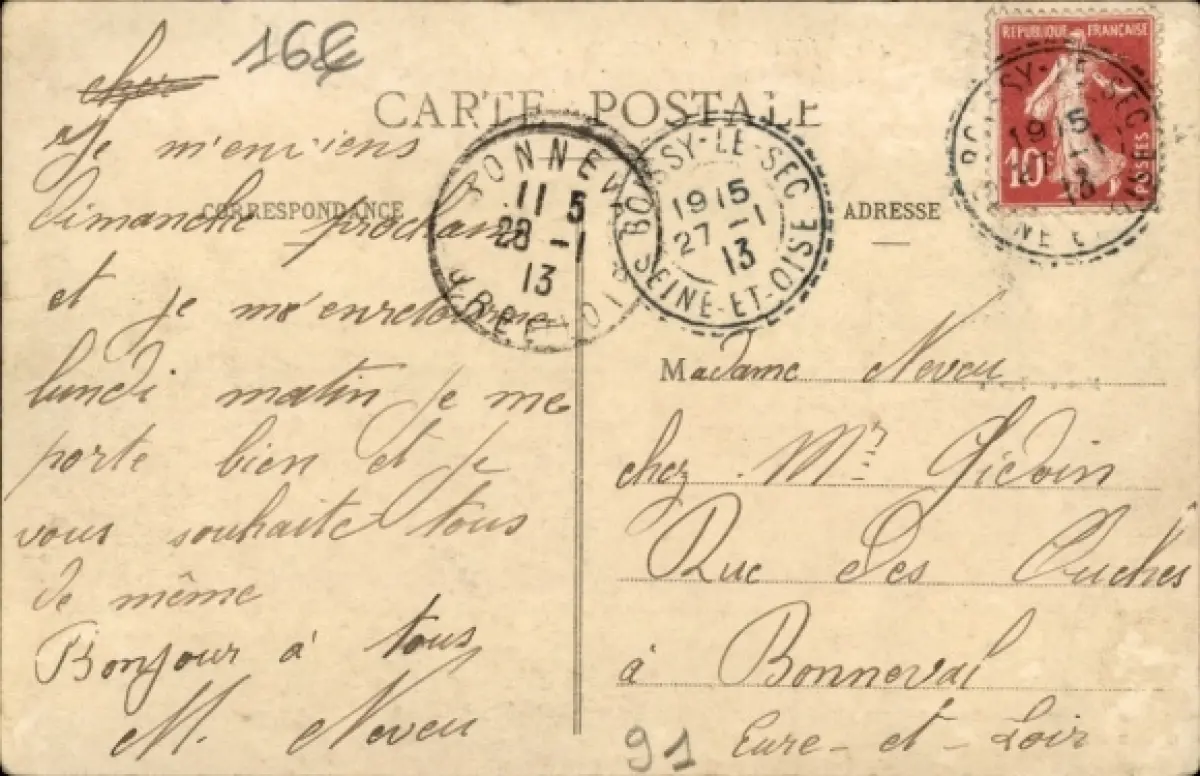 16€
CARTE POSTALE
CORRESPONDANCE
ADRESSE
cher
Je m'enviens
Dimanche prochain
et je me'enretourne
lundi matin je me
porte bien et je
vous souhaite tous
de même
Bonjour à tous
M. Neveu
BONNEVAL
11 5
28 -1
13
EURE-ET-LOIR
BOISSY-LE-SEC
1915
27 -1
13
SEINE-ET-OISE
REPUBLIQUE FRANÇAISE
10c
POSTES
BOISSY-LE-SEC
1915
13
SEINE-ET-OISE
Madame Neveu
chez Mr Gidoin
Rue Des Ouches
à Bonneval
Eure-et-Loir
91